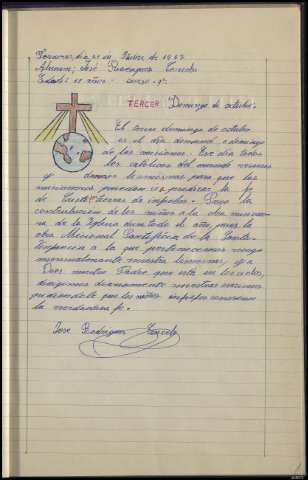 Alumno; José
Edad: 12 años. curso 4º
TERCER "Domingo de octubre"
El tercer domingo de octubre
es el día llamado domingo
de las misiones. Ese día todos
los católicos del mundo
y damos limosnas para que los
misioneros puedan ir a predicar la fe
de Cristo a tierras de infieles. Pero la
contribución de los niños a la obra misione-
ra de la Iglesia dura todo el año, pues la
obra Misional Pontificia de la Santa
Infancia a la que pertenecemos recoge
mensualmente nuestra limosna, y a
Dios nuestro Padre, que está en los cielos,
dirigimos diariamente nuestras oraciones
pidiéndole que los niños infieles conozcan
la verdadera fe.
José